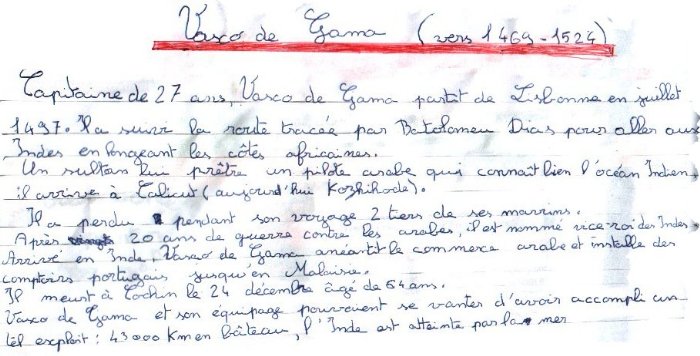 Vasco de Gama (vers 1469-1524)
Capitaine de 27 ans, Vasco de Gama partit de Lisbonne en juillet
1497. Il a suivi la route tracée par Batolomeu Dias pour aller aux
Indes en longeant les côtes africaines.
Un sultan lui prête un pilote arabe qui connaît bien l'océan Indien,
il arrive à Calicut (aujourd'hui Kozhikode).
Il a perdu pendant son voyage 2 tiers de ses marrins.
Après 20 ans de guerre contre les arabes, il est nommé vice-roi des Indes.
Arrivé en Inde, Vasco de Gama anéantit le commerce arabe et installe des
comptoirs portugais jusqu'en Malaisie.
Il meurt à Cochin le 24 décembre âgé de 54 ans.
Vasco de Gama et son équipage pouvaient se vanter d'avoir accompli un
tel exploit : 43000 Km en bâteau, l'Inde est atteinte par la mer